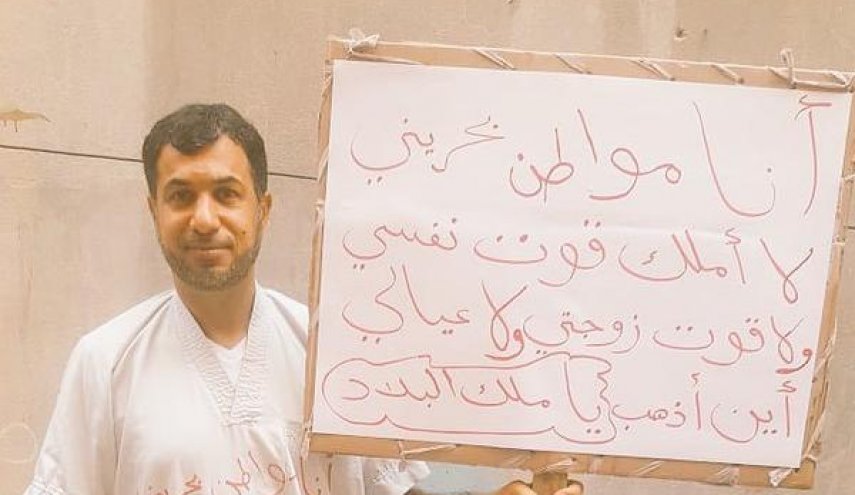 أنا مواطن بحريني
لا أملك قوت نفسي
ولا قوت زوجتي ولا عيالي
أين أذهب يا ملك البلاد
أنا مواطن بحريني